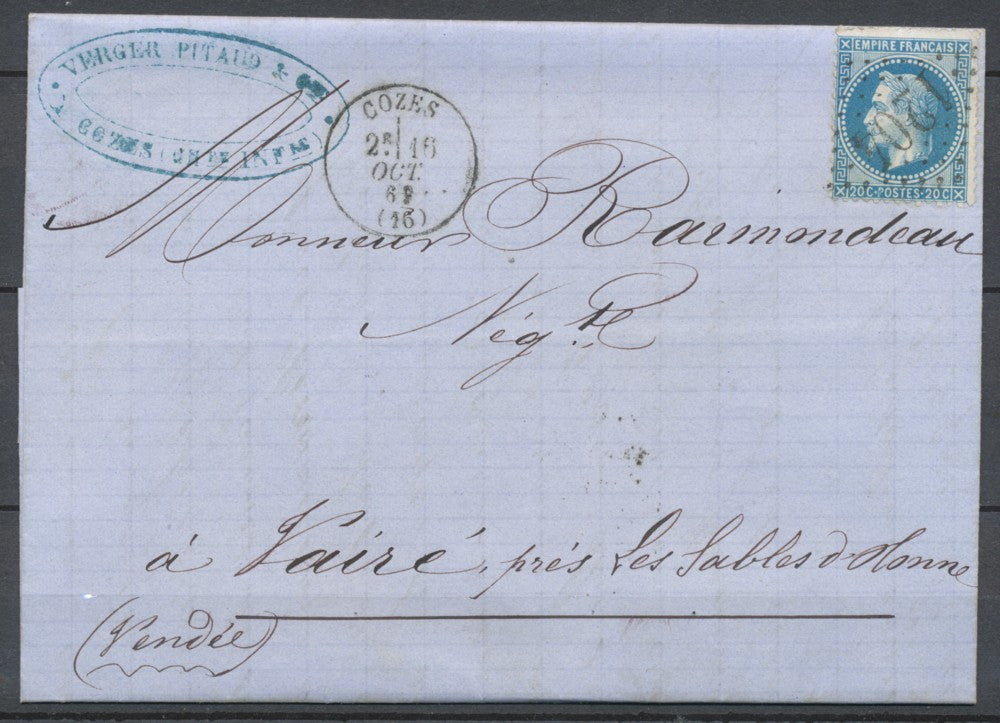 VERGER PITAUD & Cie
A COZES (CHTE INFRE)
COZES
2E 16
OCT.
69
(16)
EMPIRE FRANÇAIS
20 C · POSTES · 20 C
Monsieur Raimondeau
Négt
à Vairé, prés Les Sables d'Olonne
(Vendée)